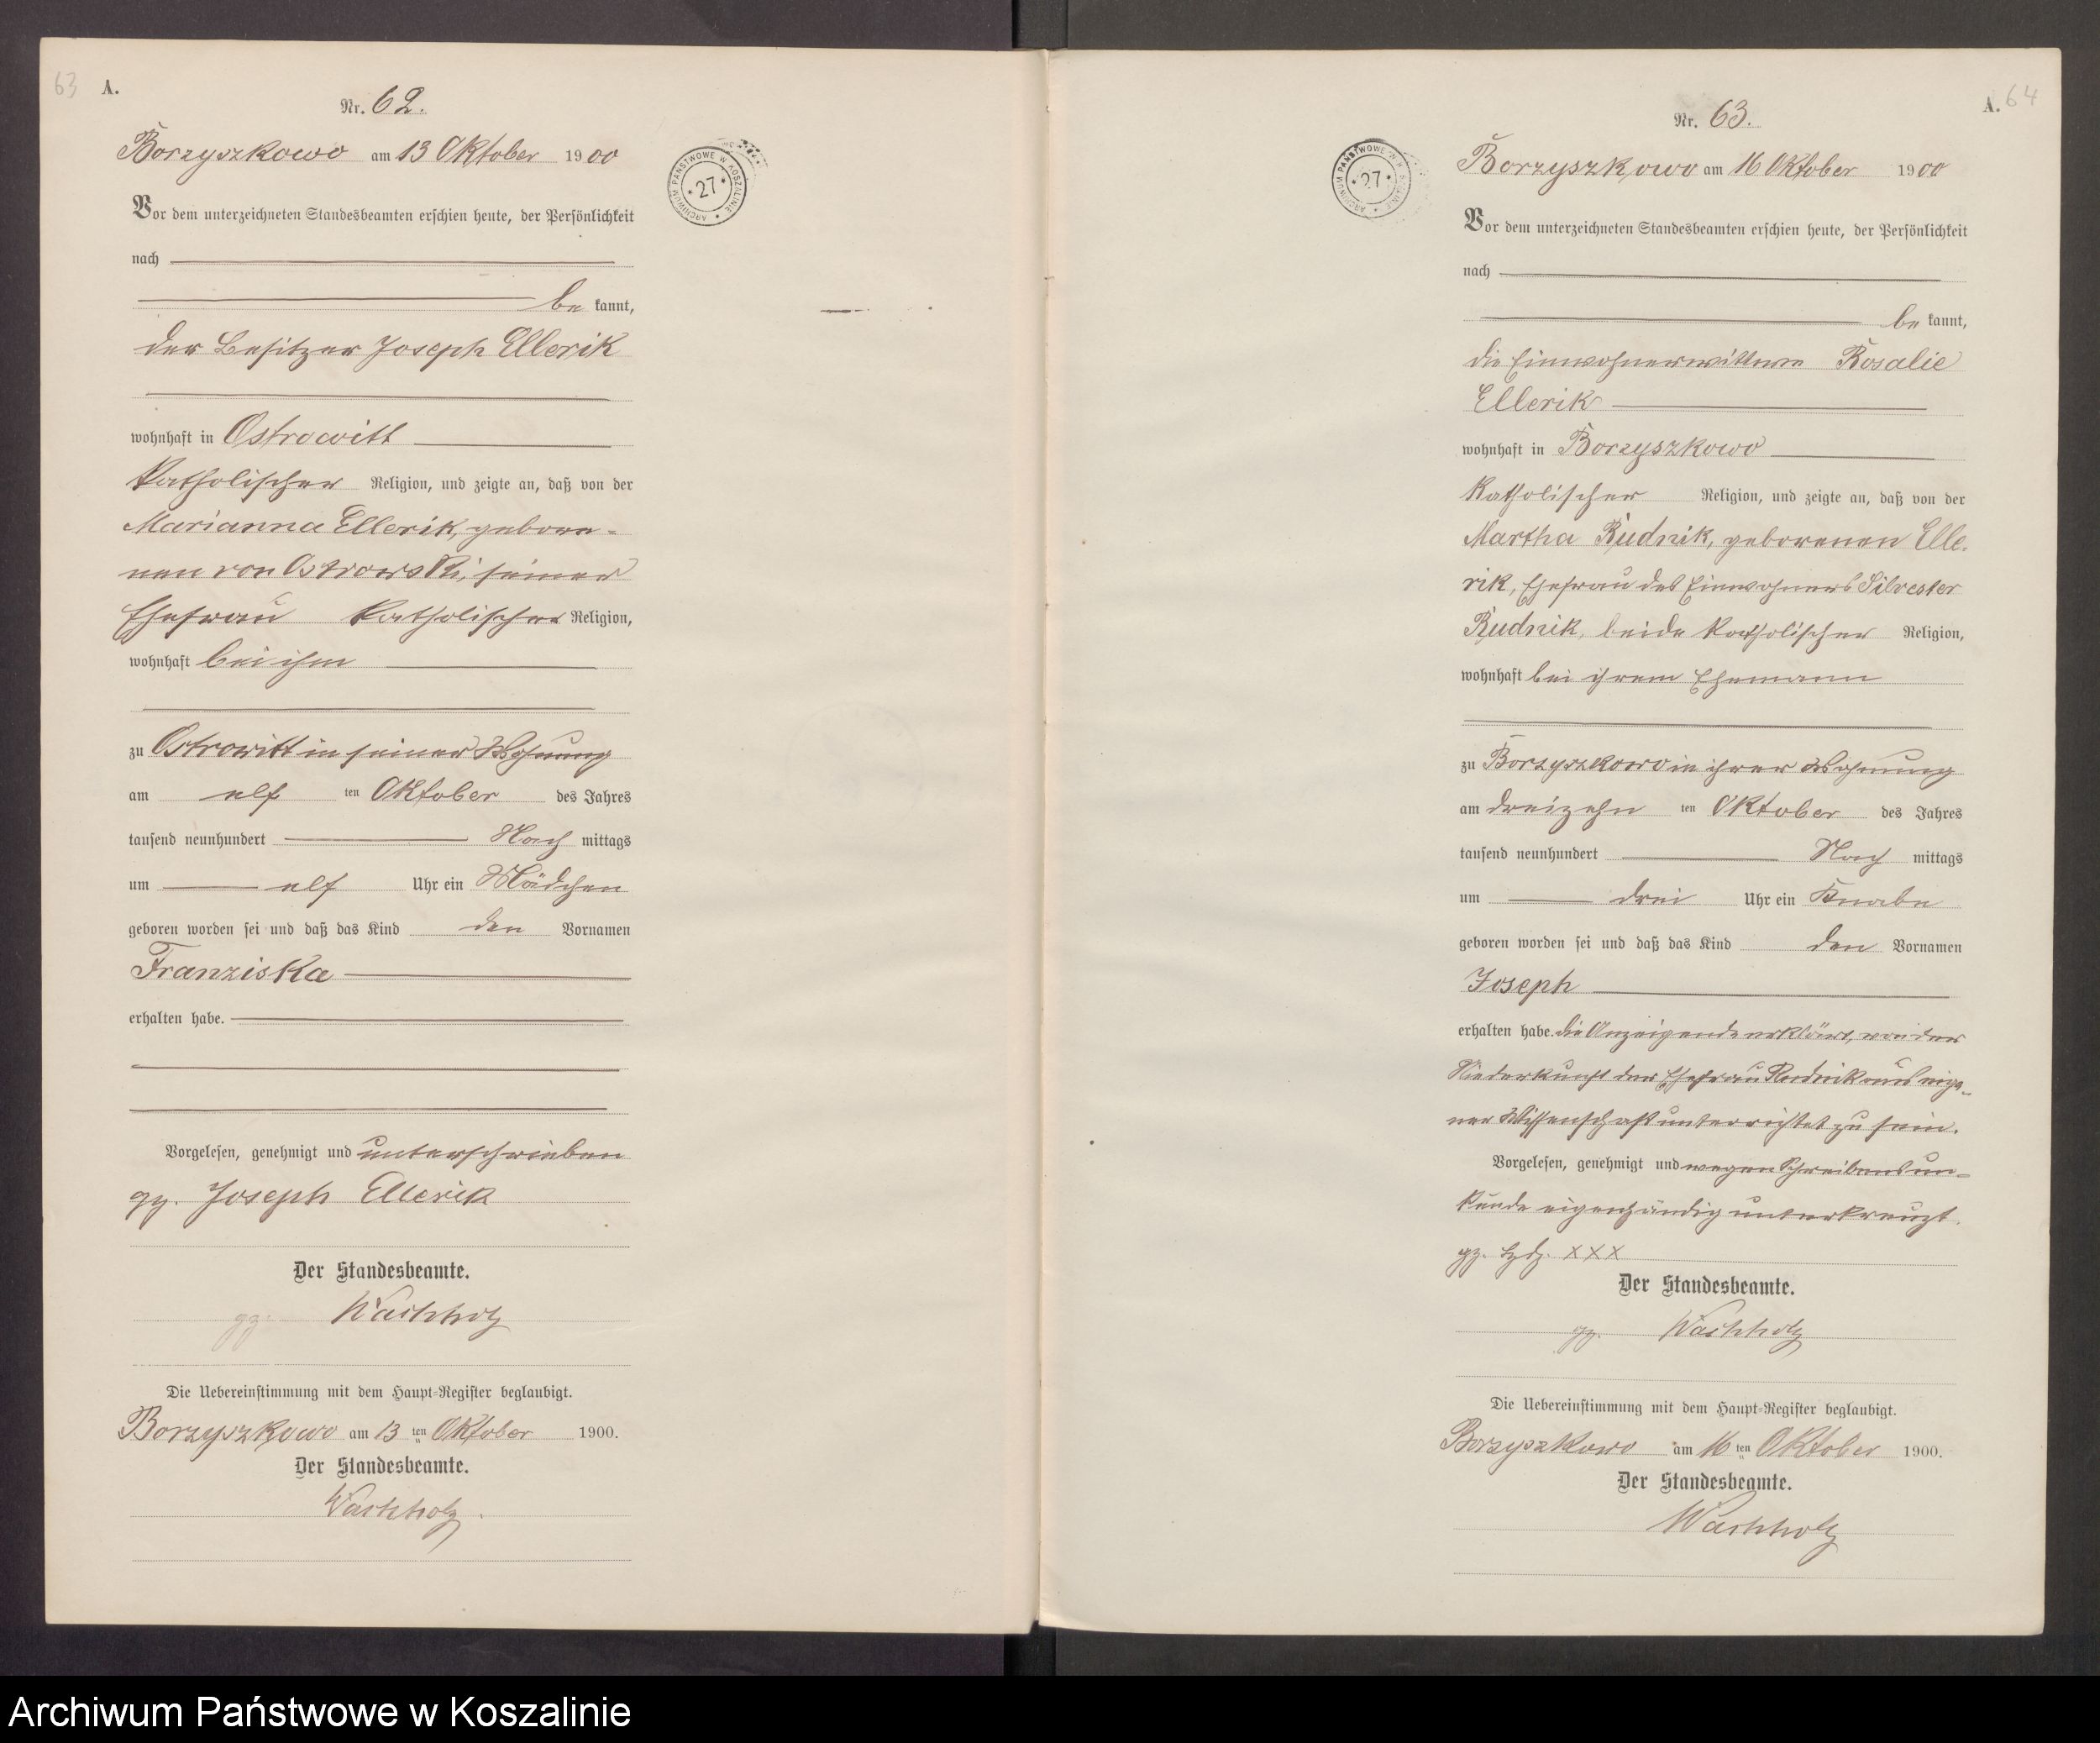 63 A.
Nr. 62.
Borzyszkowo am 13 Oktober 1900
Vor dem unterzeichneten Standesbeamten erschien heute, der Persönlichkeit
nach
be kannt,
der Besitzer Joseph Ellerik
wohnhaft in Ostrowitt
katholischer Religion, und zeigte an, daß von der
Marianna Ellerik, gebore-
nen von Ostrowski, seiner
Ehefrau katholischer Religion,
wohnhaft bei ihm
zu Ostrowitt in seiner Wohnung
am elf ten Oktober des Jahres
tausend neunhundert Nach mittags
um elf Uhr ein Mädchen
geboren worden sei und daß das Kind den Vornamen
Franziska
erhalten habe.
Vorgelesen, genehmigt und unterschrieben
gz. Joseph Ellerik
Der Standesbeamte.
gz. Wachholz
Die Uebereinstimmung mit dem Haupt-Register beglaubigt.
Borzyszkowo am 13 ten Oktober 1900.
Der Standesbeamte.
Wachholz.
ARCHIWUM PAŃSTWOWE W KOSZALINIE
27
A. 64
Nr. 63.
Borzyszkowo am 16 Oktober 1900
Vor dem unterzeichneten Standesbeamten erschien heute, der Persönlichkeit
nach
be kannt,
die Einwohnerwittwe Rosalie
Ellerik
wohnhaft in Borzyszkowo
katholischer Religion, und zeigte an, daß von der
Martha Rudnik, geborenen Elle-
rik, Ehefrau des Einwohners Silvester
Rudnik, beide katholischer Religion,
wohnhaft bei ihrem Ehemann
zu Borzyszkowo in ihrer Wohnung
am dreizehn ten Oktober des Jahres
tausend neunhundert Nach mittags
um drei Uhr ein Knabe
geboren worden sei und daß das Kind den Vornamen
Joseph
erhalten habe. die Anzeigende erklärt, von der
Niederkunft der Ehefrau Rudnik aus eige-
ner Wissenschaft unterrichtet zu sein.
Vorgelesen, genehmigt und wegen Schreibensun-
kunde eigenhändig unterkreuzt.
gz. Hdz. XXX
Der Standesbeamte.
gz. Wachholz
Die Uebereinstimmung mit dem Haupt-Register beglaubigt.
Borzyszkowo am 16 ten Oktober 1900.
Der Standesbeamte.
Wachholz
ARCHIWUM PAŃSTWOWE W KOSZALINIE
27
Archiwum Państwowe w Koszalinie